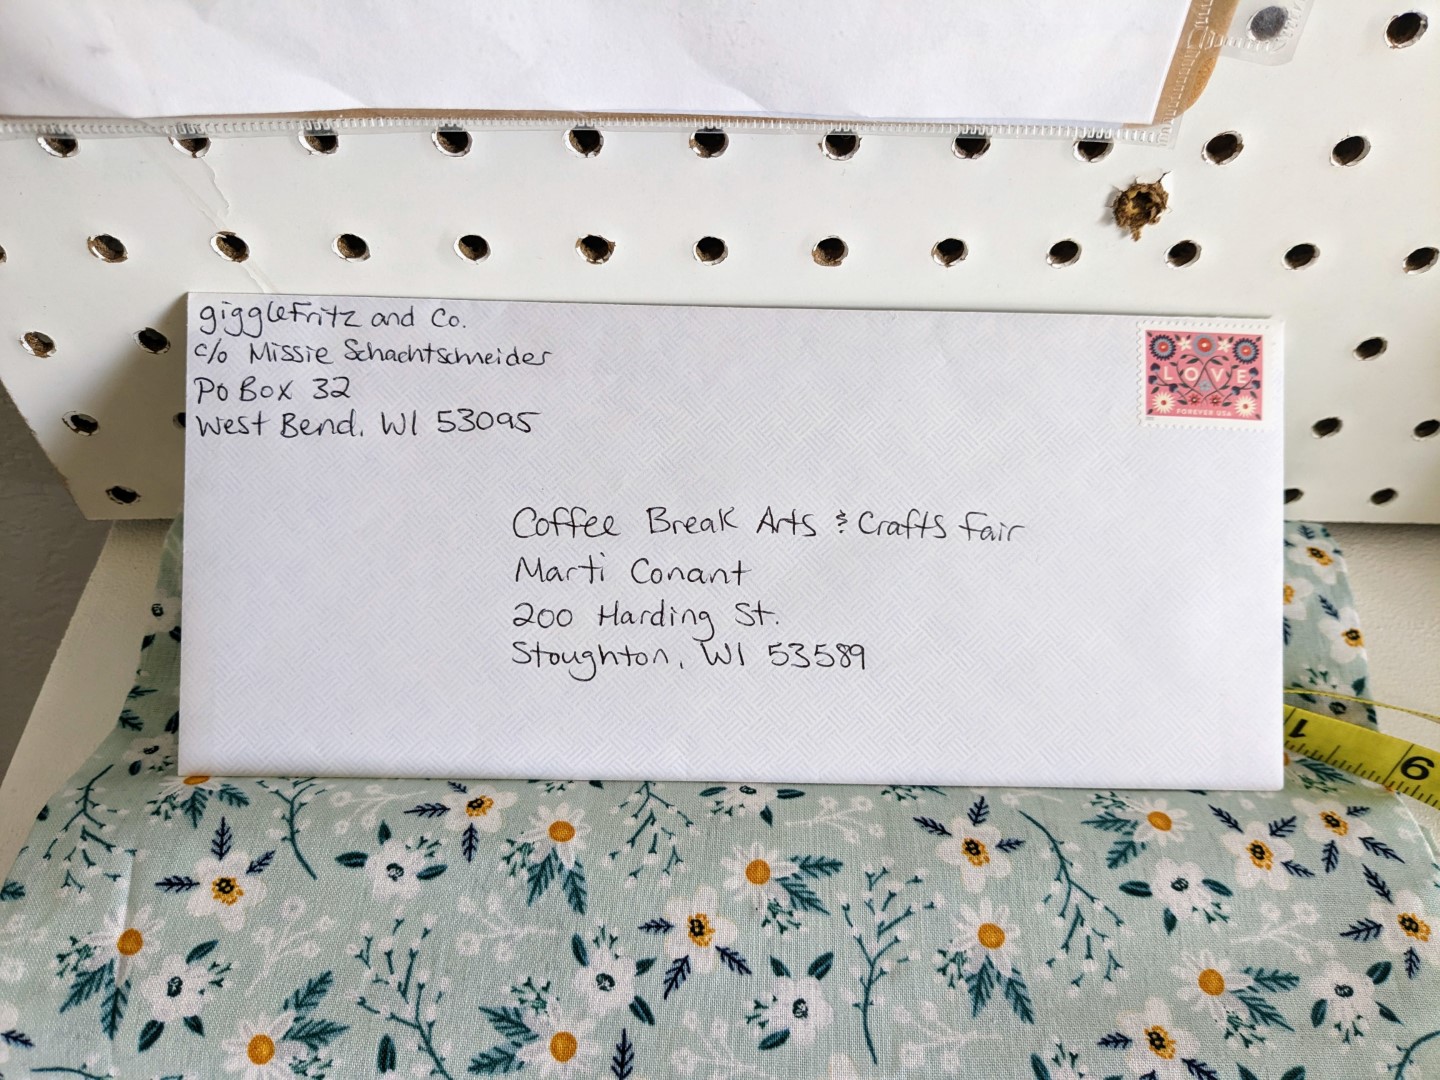 giggleFritz and Co.
c/o Missie Schachtschneider
PO Box 32
West Bend, WI 53095
LOVE
FOREVER USA
Coffee Break Arts & Crafts Fair
Marti Conant
200 Harding St.
Stoughton, WI 53589
1
9